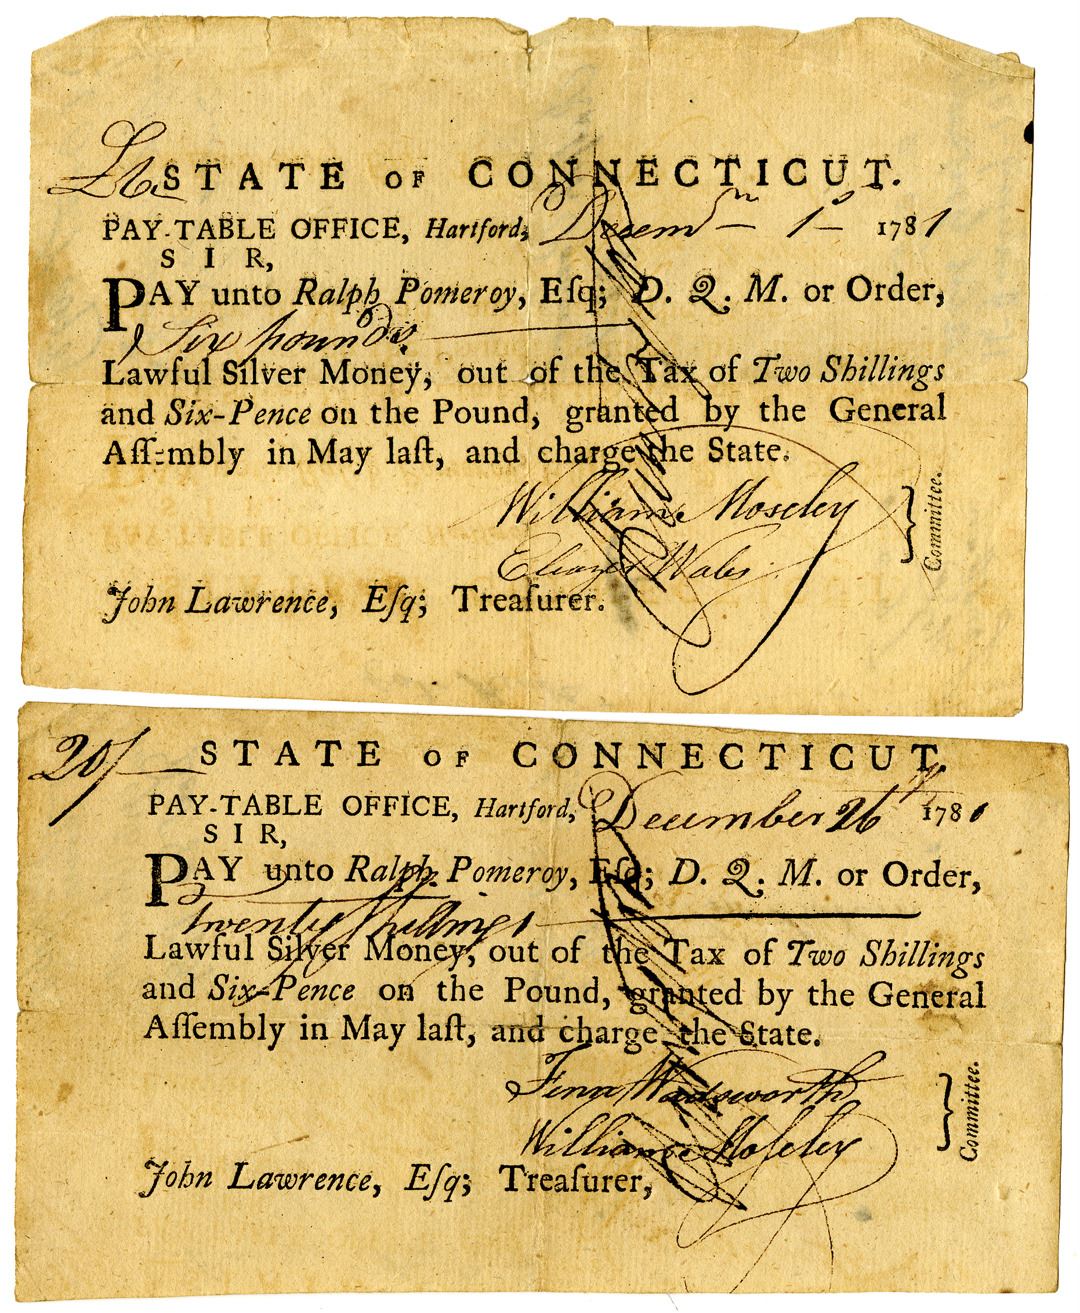 £6 STATE OF CONNECTICUT.
PAY-TABLE OFFICE, Hartford, Decem 1s 1781
SIR,
PAY unto Ralph Pomeroy, Eſq; D. Q. M. or Order,
Six pounds
Lawful Silver Money, out of the Tax of Two Shillings
and Six-Pence on the Pound, granted by the General
Aſſembly in May laſt, and charge the State.
William Moseley
Eleazer Wales
Committee.
John Lawrence, Eſq; Treaſurer.
20/ STATE OF CONNECTICUT.
PAY-TABLE OFFICE, Hartford, December 26th 1781
SIR,
PAY unto Ralph Pomeroy, Eſq; D. Q. M. or Order,
twenty ſhillings
Lawful Silver Money, out of the Tax of Two Shillings
and Six-Pence on the Pound, granted by the General
Aſſembly in May laſt, and charge the State.
Fenn Wadsworth
William Moſeley
Committee.
John Lawrence, Eſq; Treaſurer,